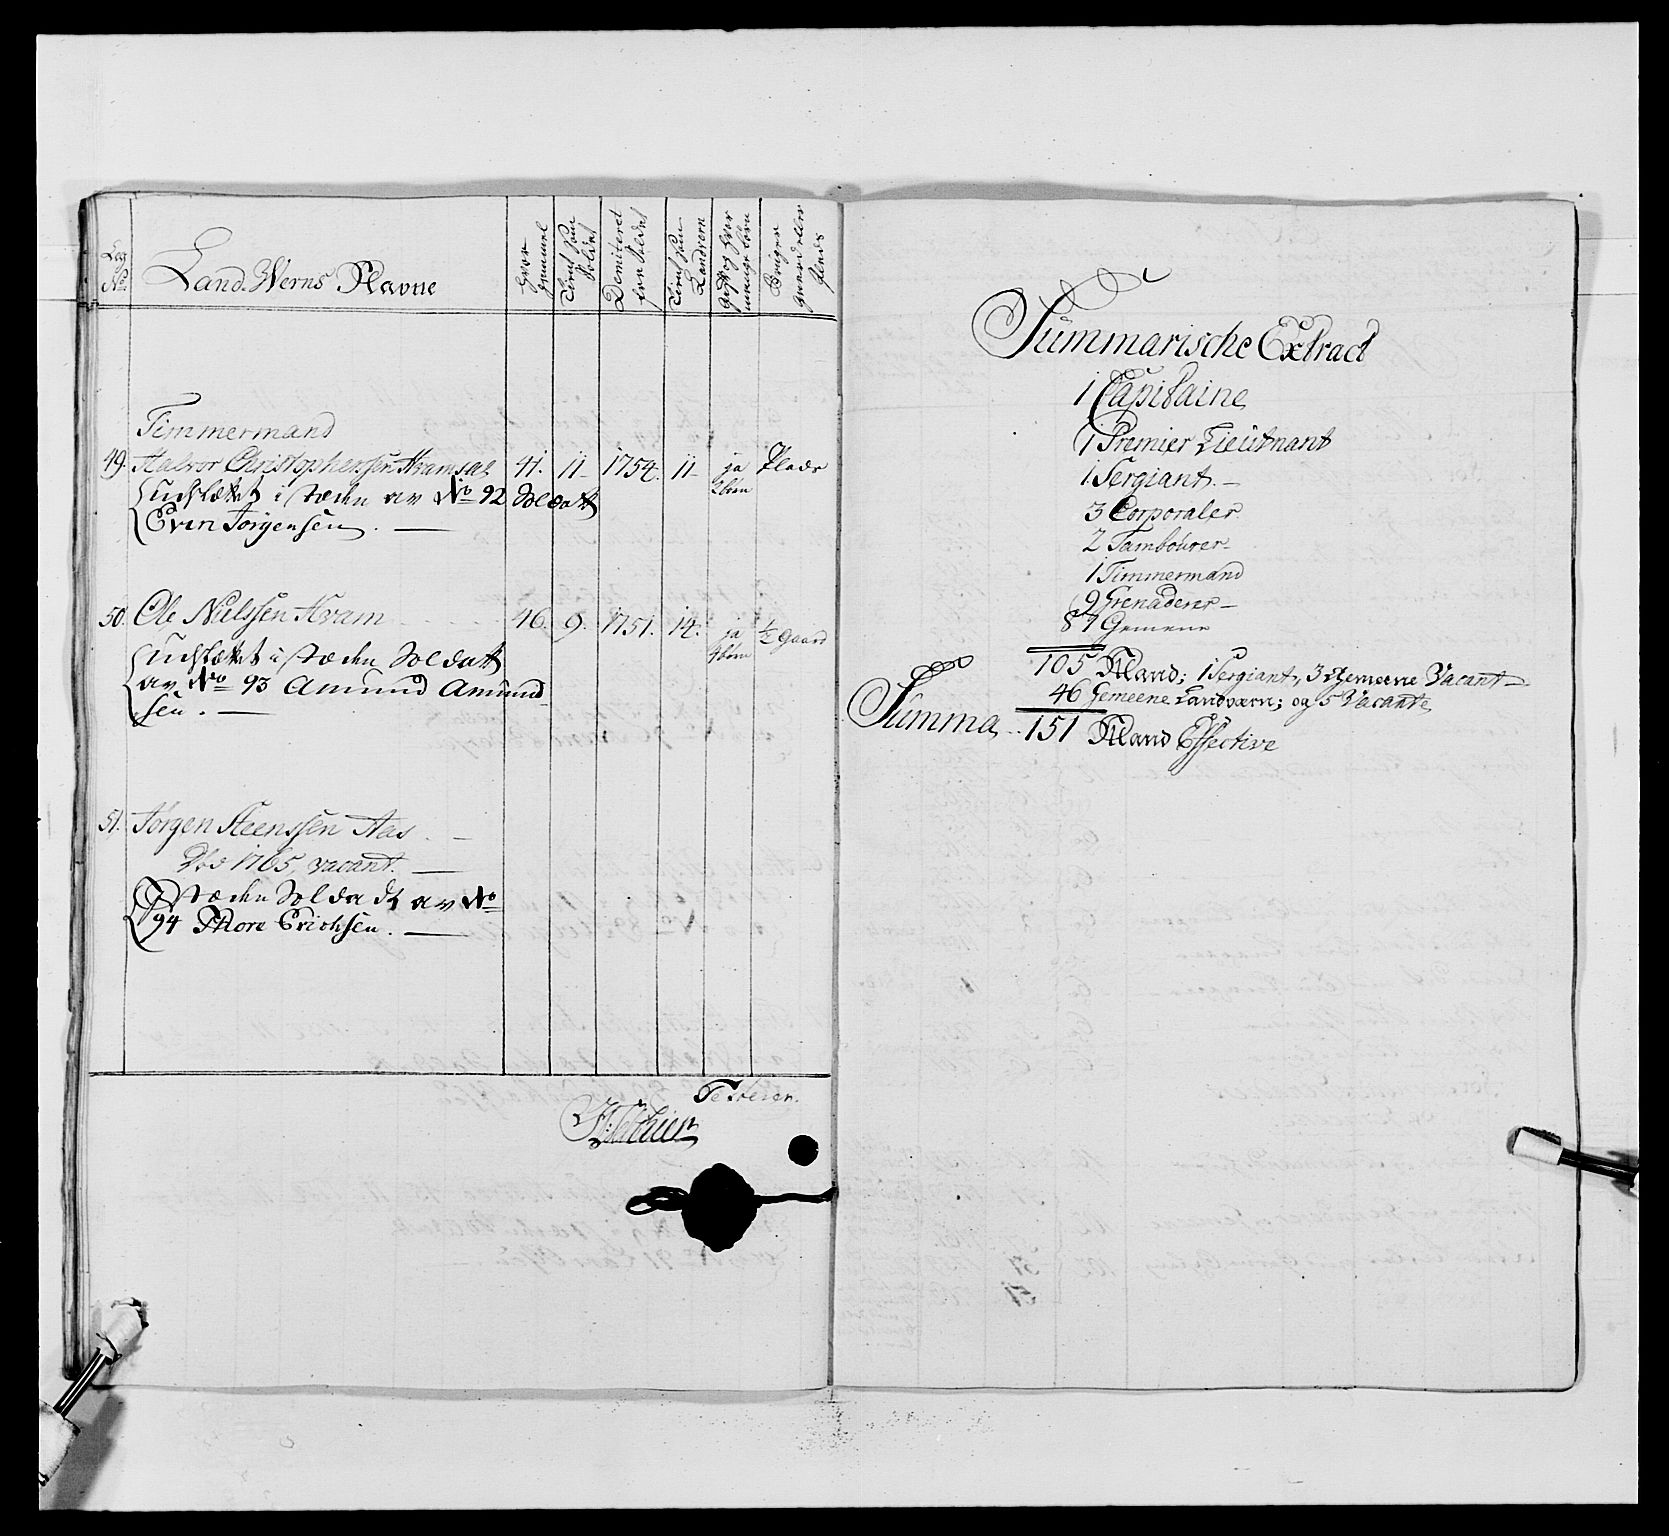 Leg No.
Land-Werns Navne
Hvor gammel
Tient som Soldat
Dimiteret fra Soldat
Tient som Landvern
Gift og hvor mange børn
Bruger gaard eller Plads
Timmermand
49. Halvor Christophersen Kramsas 41. 11 1754. 11 ja 2 børn Plads
Udslættet i stæden av No 92 Soldatt
Even Jørgensen.
50. Ole Nielssen Kram 46. 9. 1751. 14. ja 4 børn ½ gaard
Udslættet i stæden Soldatt
av No 93 Amund Amund
sen.
51. Jørgen Steenssen Aas
Død 1765, vacant.
I stæden Soldadt av No
94 Thore Erichsen.
Testerer.
Summarische Extract
1 Capitaine
1 Premier Lieutnant
1 Sergiant.
3 Corporaler
2 Tambourer
1 Timmermand
9 Grenaderer
87 Gemene
105 Mand; 1 Sergiant, 3 Gemeene Vacant
46 Gemeene Landværn; og 5 Vacante
Summa 151 Mand Effective